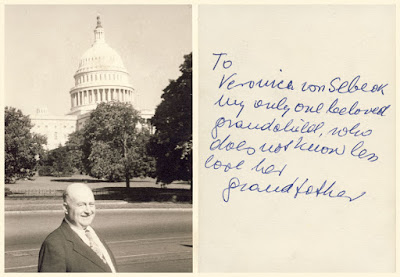 To
Veronica von
my only one beloved
grandchild, who
does not know less
love her
grandfather